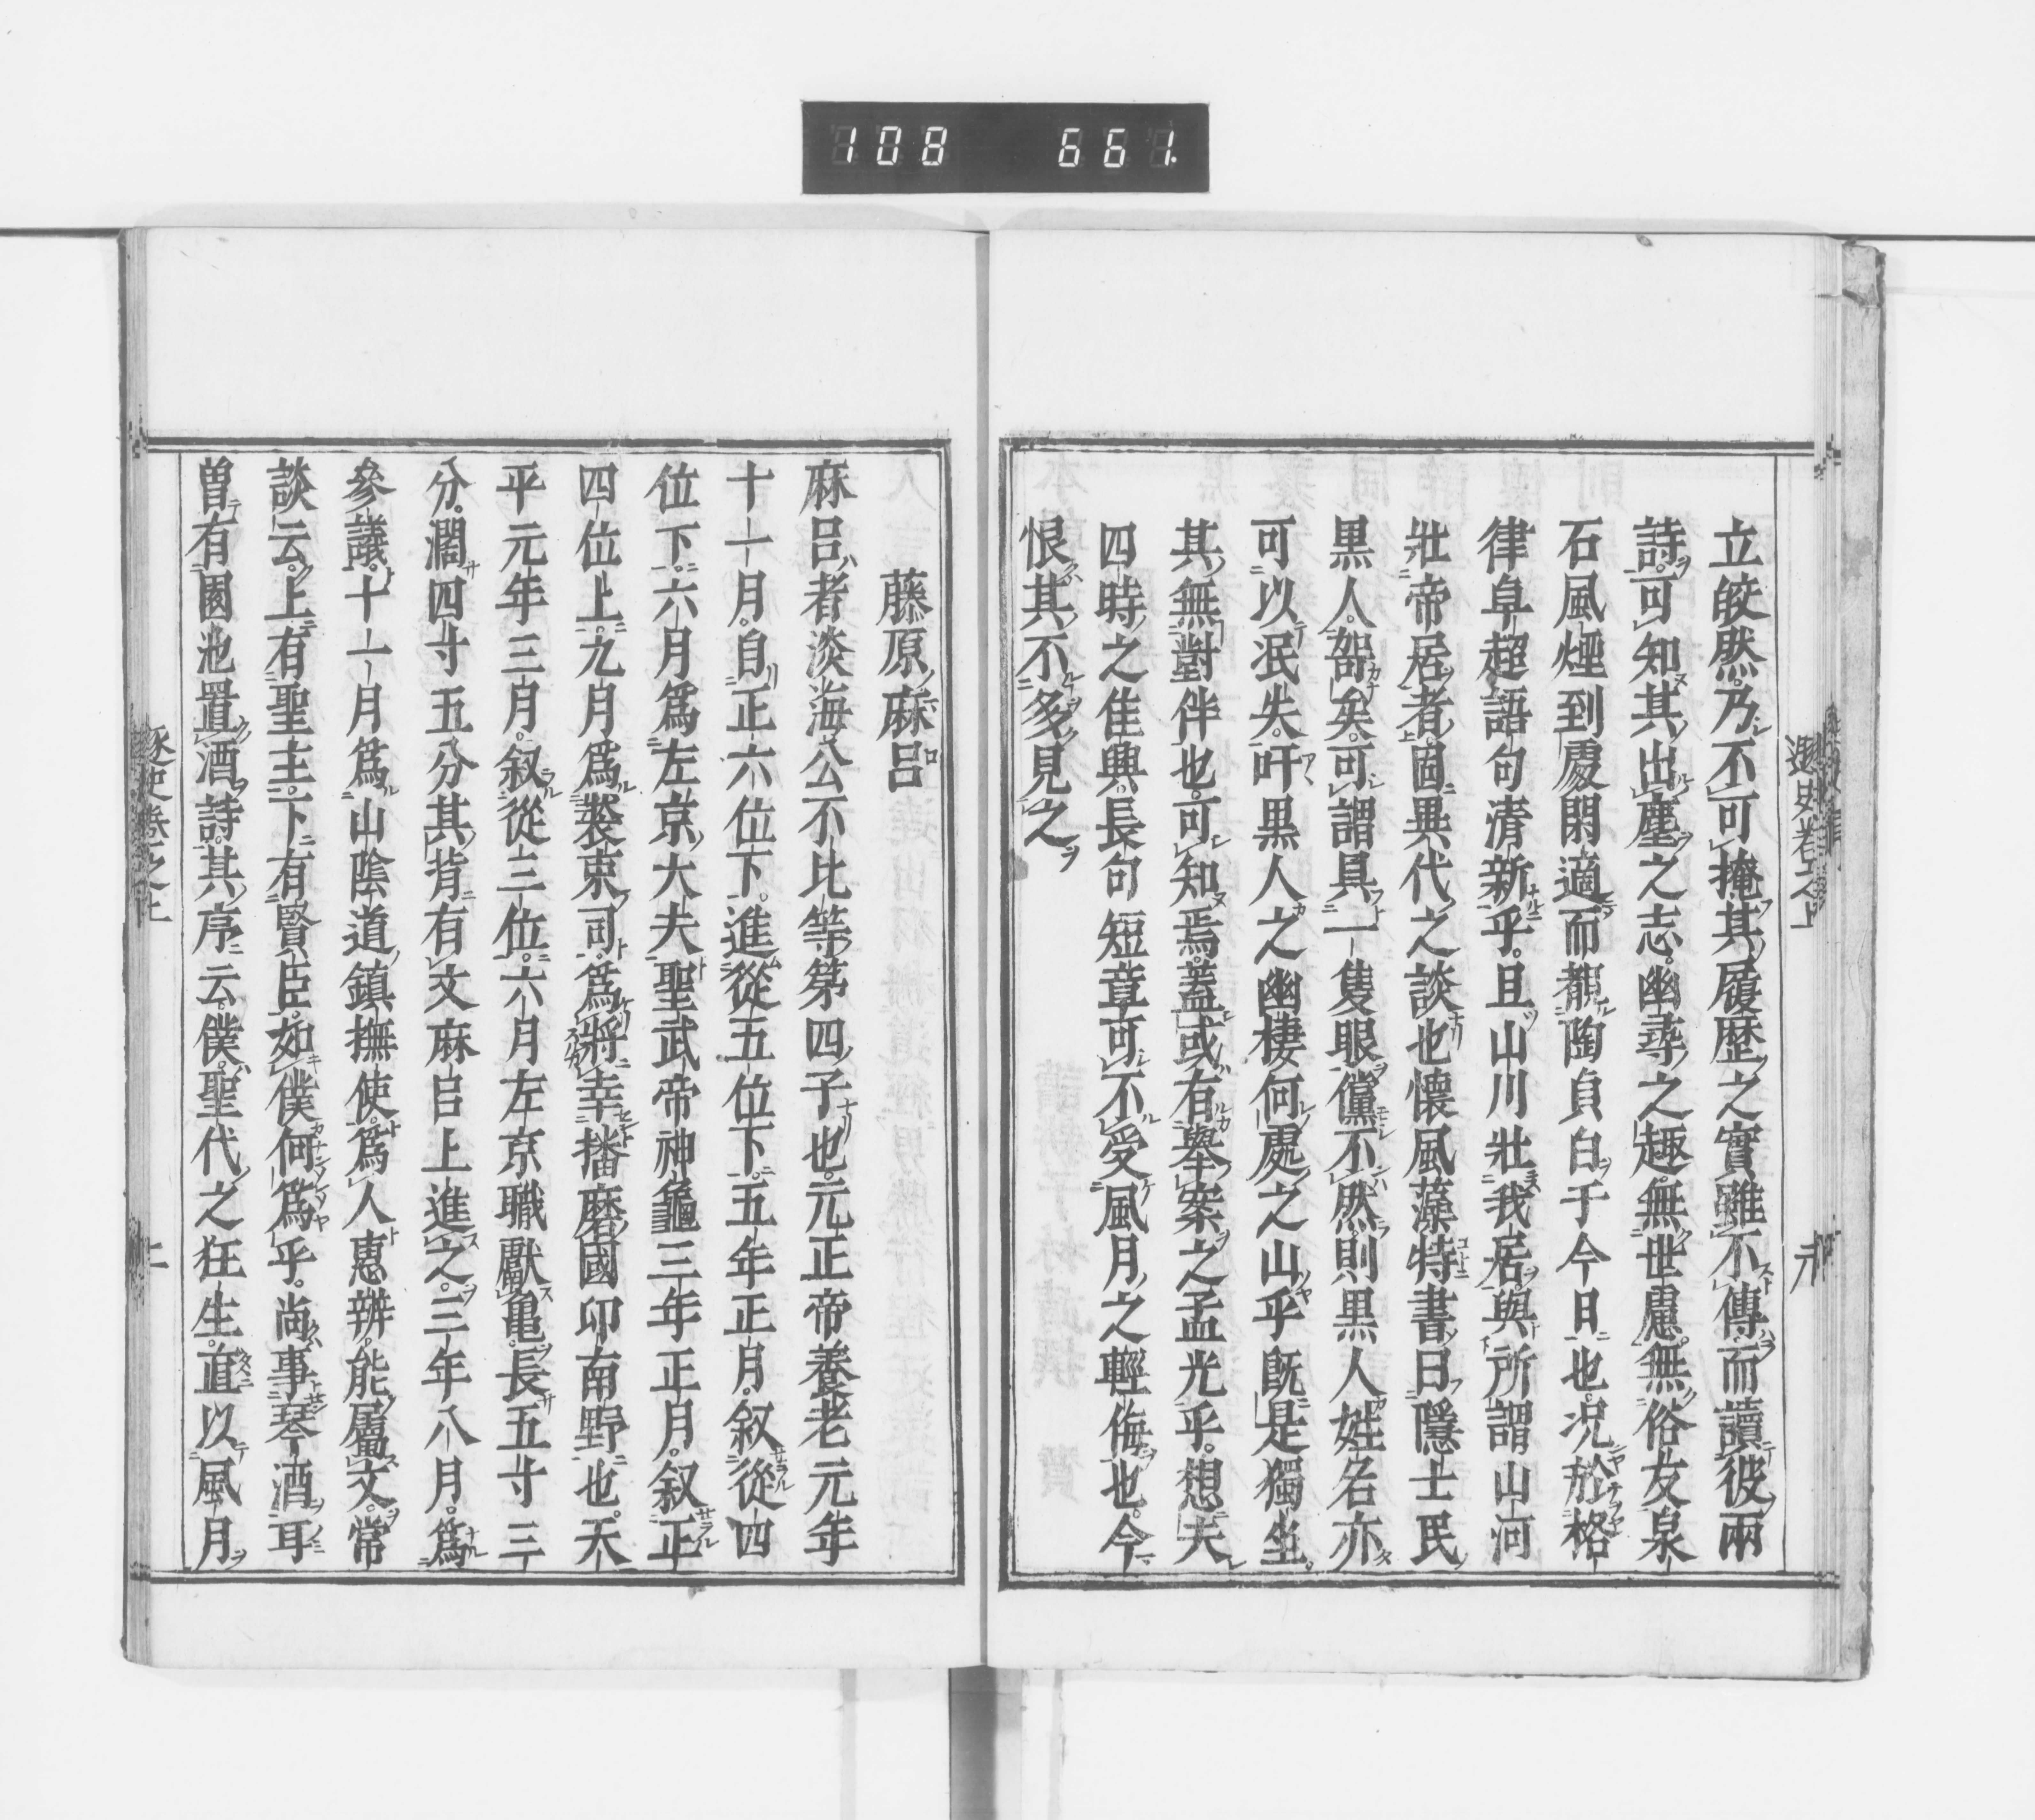 108 661
立皎然乃不可掩其履歷之實雖不傳而讀彼兩
詩可知其出塵之志幽尋之趣無世慮無俗友泉
石風煙到處閑適而覩陶貞白于今日也況於格
律阜超語句清新乎且山川壯我居與所謂山河
壯帝居者固異代之談也懷風藻特書曰隱士民
黑人韶矣可謂具一隻眼儻不然則黑人姓名亦
可以泯失吁黒人之幽棲何處之山乎既是獨坐
其無對伴也可知焉蓋或有舉案之孟光乎想夫
四時之佳興長句短章可不受風月之輕侮也今
恨其不多見之
藤原麻呂
麻呂者淡海公不比等第四子也元正帝養老元年
十一月自正六位下進從五位下五年正月叙從四
位下六月爲左京大夫聖武帝神龜三年正月叙正
四位上九月爲裝束司爲將幸播磨國印南野也天
平元年三月叙從三位六月左京職獻亀長五寸三
分濶四寸五分其背有文麻呂上進之三年八月爲
參議十一月爲山陰道鎮撫使爲人惠辨能屬文常
談云上有聖主下有賢臣如僕何爲乎尚事琴酒耳
曽有園池置酒詩其序云僕聖代之狂生直以風月